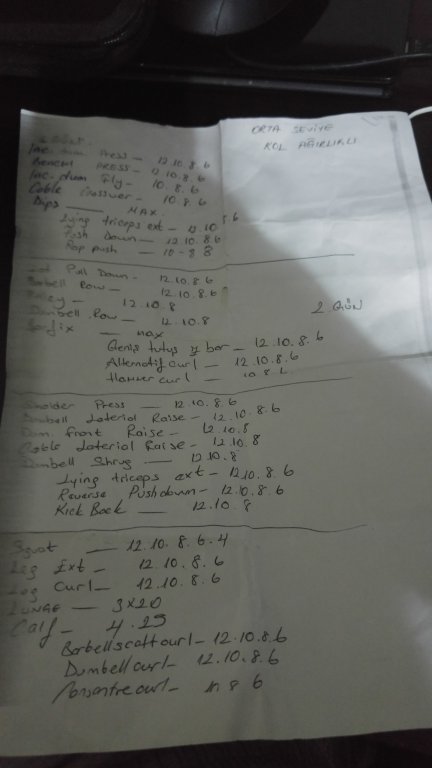 ORTA SEVİYE
KOL AĞIRLIKLI
Press - 12.10.8.6
Bench PRESS - 12.10.8.6
Inc. Dum Fly - 10.8.6
Cable Crossover - 10.8.6
Dips - MAX.
Lying triceps ext - 12.10.8.6
Push Down - 12.10.8.6
Rop push - 10-8 8
Pull Down - 12.10.8.6
Barbell Row - 12.10.8.6
12.10.8
Dumbell Row - 12.10.8
Barfix - max
2 GÜN
Geniş tutuş z bar - 12.10.8.6
Alternatif curl - 12.10.8.6
Hammer curl - 10.8.6
Sholder Press - 12.10.8.6
Dumbell Laterial Raise - 12.10.8.6
Dum. front Raise - 12.10.8
Cable Laterial Raise - 12.10.8
Dumbell Shrug - 12.10.8
Lying triceps ext - 12.10.8.6
Reverse Pushdown - 12.10.8.6
Kick Back - 12.10.8
Squat - 12.10.8.6.4
Leg Ext - 12.10.8.6
Leg Curl - 12.10.8.6
LUNGE - 3x20
Calf - 4.25
Barbell scott curl - 12.10.8.6
Dumbell curl - 12.10.8.6
Konsantre curl - 10 8 6